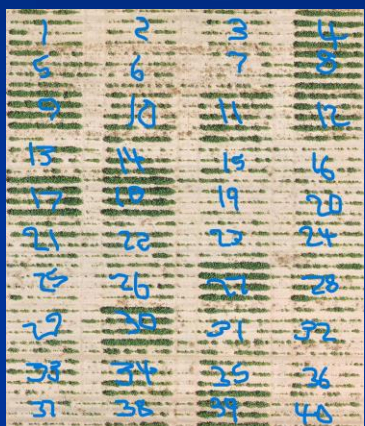 1 2 3 4
5 6 7 8
9 10 11 12
13 14 15 16
17 18 19 20
21 22 23 24
25 26 27 28
29 30 31 32
33 34 35 36
37 38 39 40